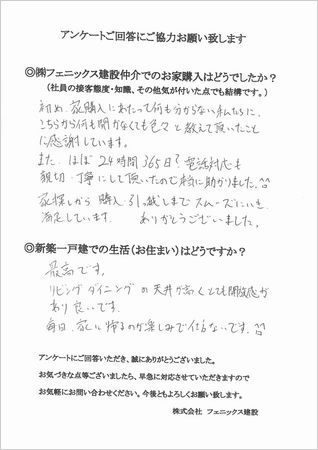 アンケートご回答にご協力お願い致します
◎㈱フェニックス建設仲介でのお家購入はどうでしたか？
（社員の接客態度・知識、その他気が付いた点でも結構です。）
初め、家購入にあたって何も分からない私たちに、
こちらから何も聞かなくても色々と教えて頂いたこと
に感謝しています。
また、ほぼ24時間365日？電話対応も
親切・丁寧にして頂いたので本当に助かりました。^^
家探しから購入・引っ越しまでスムーズにいき、
満足しています。 ありがとうございました。
◎新築一戸建での生活（お住まい）はどうですか？
最高です。
リビングダイニングの天井が高くとても開放感が
あり良いです。
毎日、家に帰るのが楽しみで仕方ないです。^^
アンケートにご回答いただき、誠にありがとうございました。
お気づきな点等ございましたら、早急に対応させていただきますので
お気軽にお問い合わせください。今後ともよろしくお願い致します。
株式会社 フェニックス建設